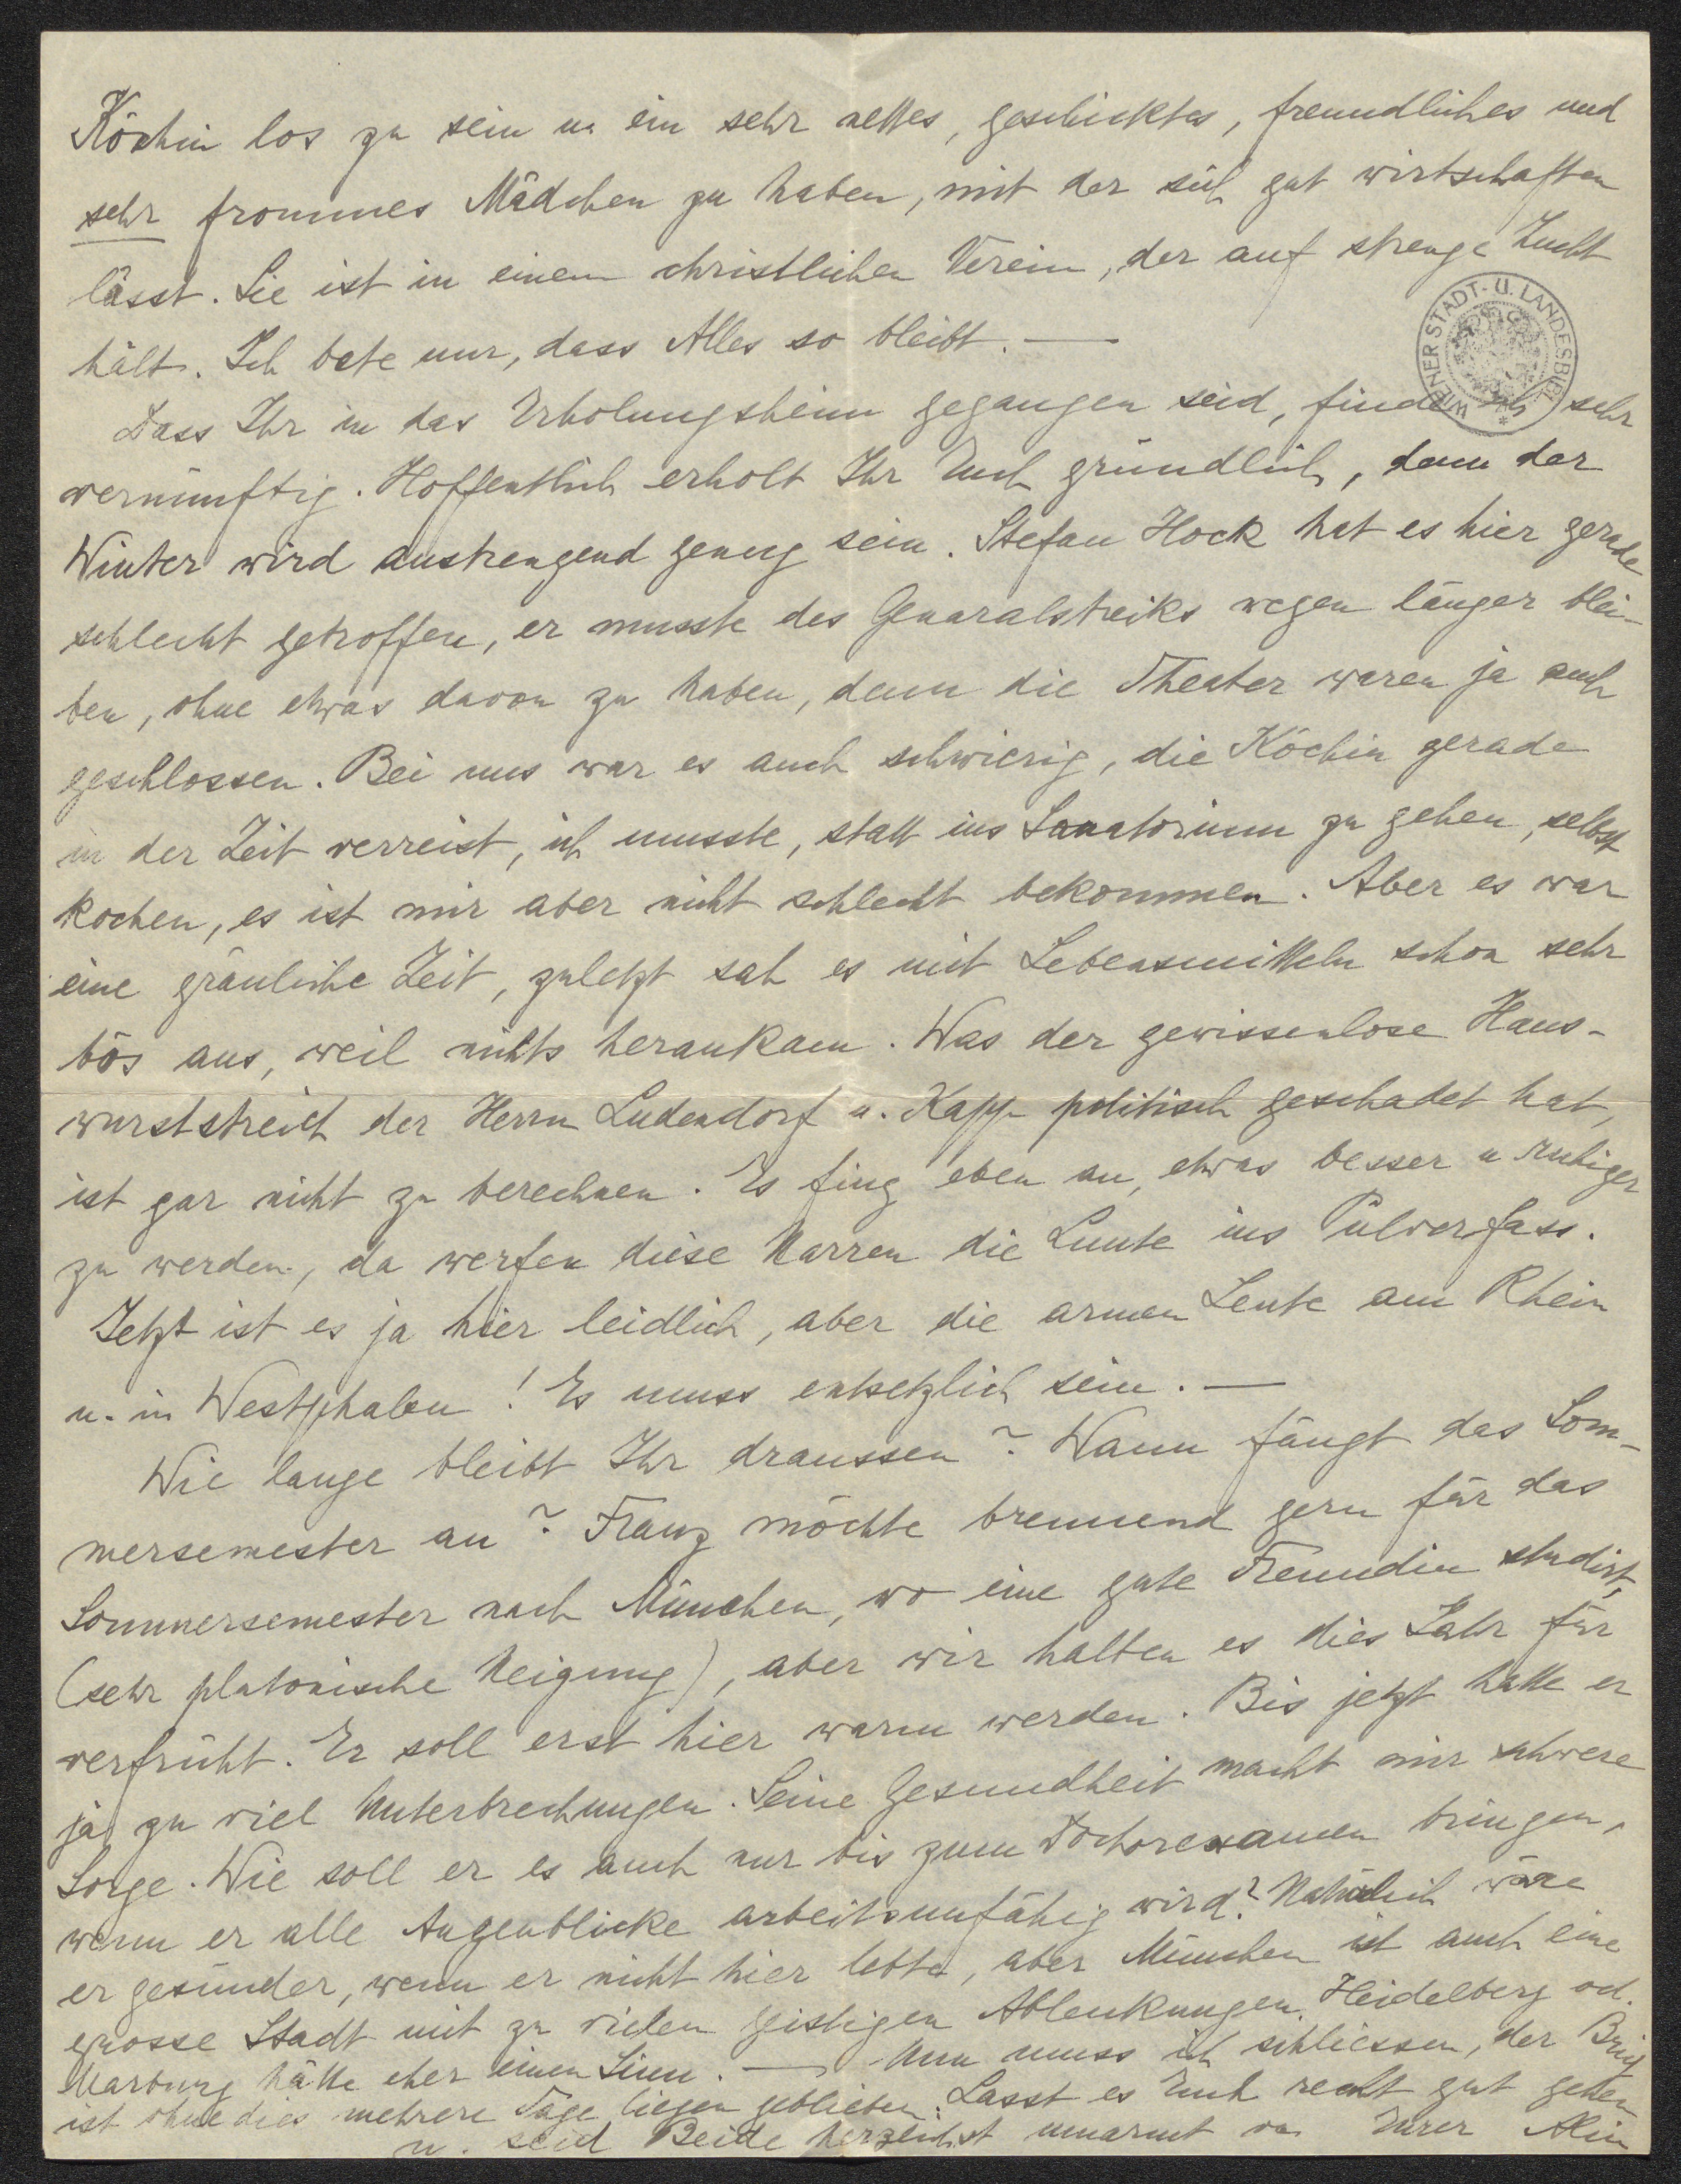 Köchin los zu sein u. ein sehr nettes, geschicktes, freundliches und
sehr frommes Mädchen zu haben, mit der sich gut wirtschaften
lässt. Sie ist in einem christlichen Verein, der auf strenge Zucht
hält. Ich bete nur, dass Alles so bleibt. —
WIENER STADT- U. LANDESBIBL.
Dass Ihr in das Erholungsheim gegangen seid, finde ich sehr
vernünftig. Hoffentlich erholt Ihr Euch gründlich, denn der
Winter wird anstrengend genug sein. Stefan Hock hat es hier gerade
schlecht getroffen, er musste des Generalstreiks wegen länger blei-
ben, ohne etwas davon zu haben, denn die Theater waren ja auch
geschlossen. Bei uns war es auch schwierig, die Köchin gerade
in der Zeit verreist, ich musste, statt ins Sanatorium zu gehen, selbst
kochen, es ist mir aber nicht schlecht bekommen. Aber es war
eine gräuliche Zeit, zuletzt sah es mit Lebensmitteln schon sehr
bös aus, weil nichts herankam. Was der gewissenlose Hans-
wurststreich der Herrn Ludendorf u. Kapp politisch geschadet hat,
ist gar nicht zu berechnen. Es fing eben an, etwas besser u ruhiger
zu werden, da werfen diese Narren die Lunte ins Pulverfass.
Jetzt ist es ja hier leidlich, aber die armen Leute am Rhein
u. in Westphalen! Es muss entsetzlich sein. —
Wie lange bleibt Ihr draussen? Wann fängt das Som-
mersemester an? Franz möchte brennend gern für das
Sommersemester nach München, wo eine gute Freundin studirt,
(sehr platonische Neigung), aber wir halten es dies Jahr für
verfrüht. Er soll erst hier warm werden. Bis jetzt hatte er
ja zu viel Unterbrechungen. Seine Gesundheit macht mir schwere
Sorge. Wie soll er es auch nur bis zum Doctorexamen bringen,
wenn er alle Augenblicke arbeitsunfähig wird? Natürlich wäre
er gesünder, wenn er nicht hier lebte, aber München ist auch eine
grosse Stadt mit zu vielen geistigen Ablenkungen. Heidelberg od.
Marburg hätte eher einen Sinn. — Nun muss ich schliessen, der Brief
ist ohnedies mehrere Tage liegen geblieben. Lasst es Euch recht gut gehen
u. seid Beide herzlichst umarmt von Eurer